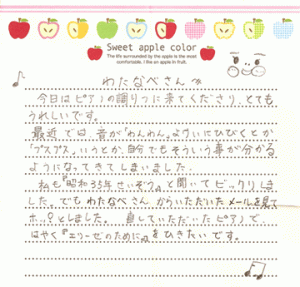 Sweet apple color
The life surrounded by the apple is the most
comfortable. I like an apple in fruit.
わたなべさんへ
今日はピアノの調りつに来てくださり、とても
うれしいです。
最近では、音が「わんわん」よけいにひびくとか
「プスプス」いうとか、自分でもそういう事が分かる
ようになってきてしまいました。
私も『昭和35年せいぞう』と聞いてビックリしま
した。でもわたなべさんからいただいたメールを見て
ホッとしました。直していただいたピアノで、
はやく『エリーゼのために』をひきたいです。